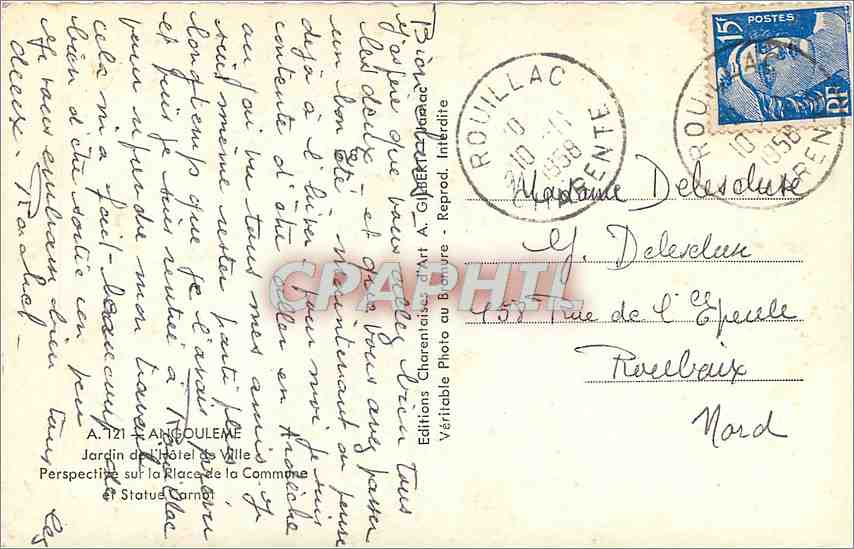 Bien chers,
J'espère que vous allez bien tous
les deux et que vous avez passer
un bon été maintenant on pense
déjà à l'hiver, pour moi je suis
contente d'être aller en Ardèche
où j'ai vu tous mes amis. Je
suis même rester parti plus
longtemps que je l'avais prévu
et puis je suis rentrée à Rouillac
pour reprendre mon travail
cela m'a fait beaucoup de
bien d'être sortie un peu
Je vous embrasse bien tous les
deux. Rachel
A. 121 - ANGOULEME
Jardin de l'Hôtel de Ville
Perspective sur la Place de la Commune
et Statue Carnot
Editions Charentaises d'Art A. GILBERT - Jarnac
Véritable Photo au Bromure - Reprod. Interdite
CPAPHIL
ROUILLAC
10 -11
1958
CHARENTE
POSTES
15F
RF
ROUILLAC
10
1958
Madame Delescluse
Y. Delescluse
458 Rue de l'Epeule
Roubaix
Nord